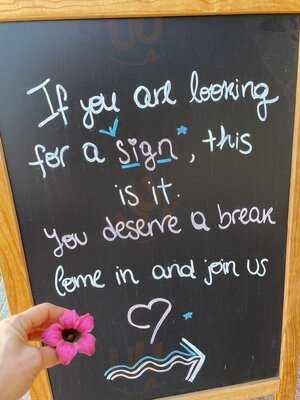 If you are looking
for a sign, this
is it.
you deserve a break
Come in and join us